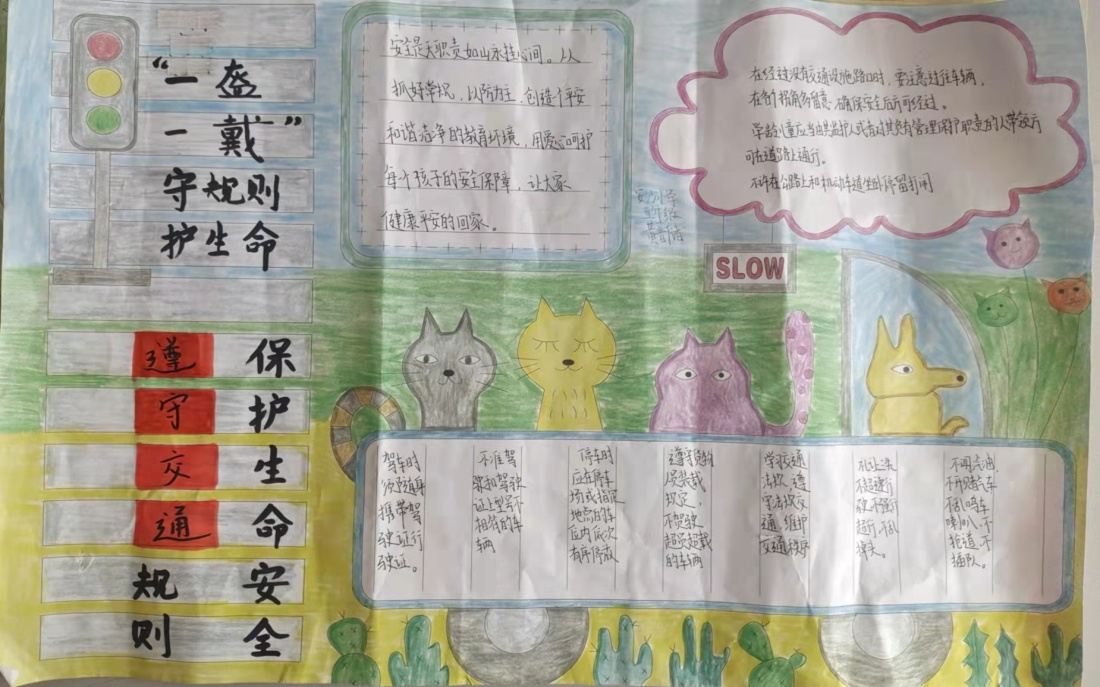 “一盔
一戴”
守规则
护生命
遵守交通规则
保护生命安全
安全是天职责如山永挂心间。从
抓好常规,以防为主,创造个平安
和谐洁净的教育环境,用爱心呵护
每个孩子的安全保障,让大家
健康平安的回家。
在经过没有交通设施路口时,要注意过往车辆,
在各个拐角多留意,确保安全后方可经过。
学龄儿童应当由其监护人或者对其负有管理保护职责的人带领方
可在道路上通行。
不许在公路上和机动车道坐卧停留打闹
SLOW
驾车时
须随身
携带驾
驶证行
驶证。
不准驾
驶和驾驶
证上型号不
相符的车
辆
停车时
应在停车
场或指定
地点的车
位内依次
有序停放
遵守
规定,
不驾驶
超员超载
的车辆
学校交通
法规,遵
守法规交
通,维护
交通秩序
礼让
不超速行
驶不强行
超行,不乱
掉头。
不闻汽油,
不
不乱鸣车
喇叭,不
抢道,不
插队。